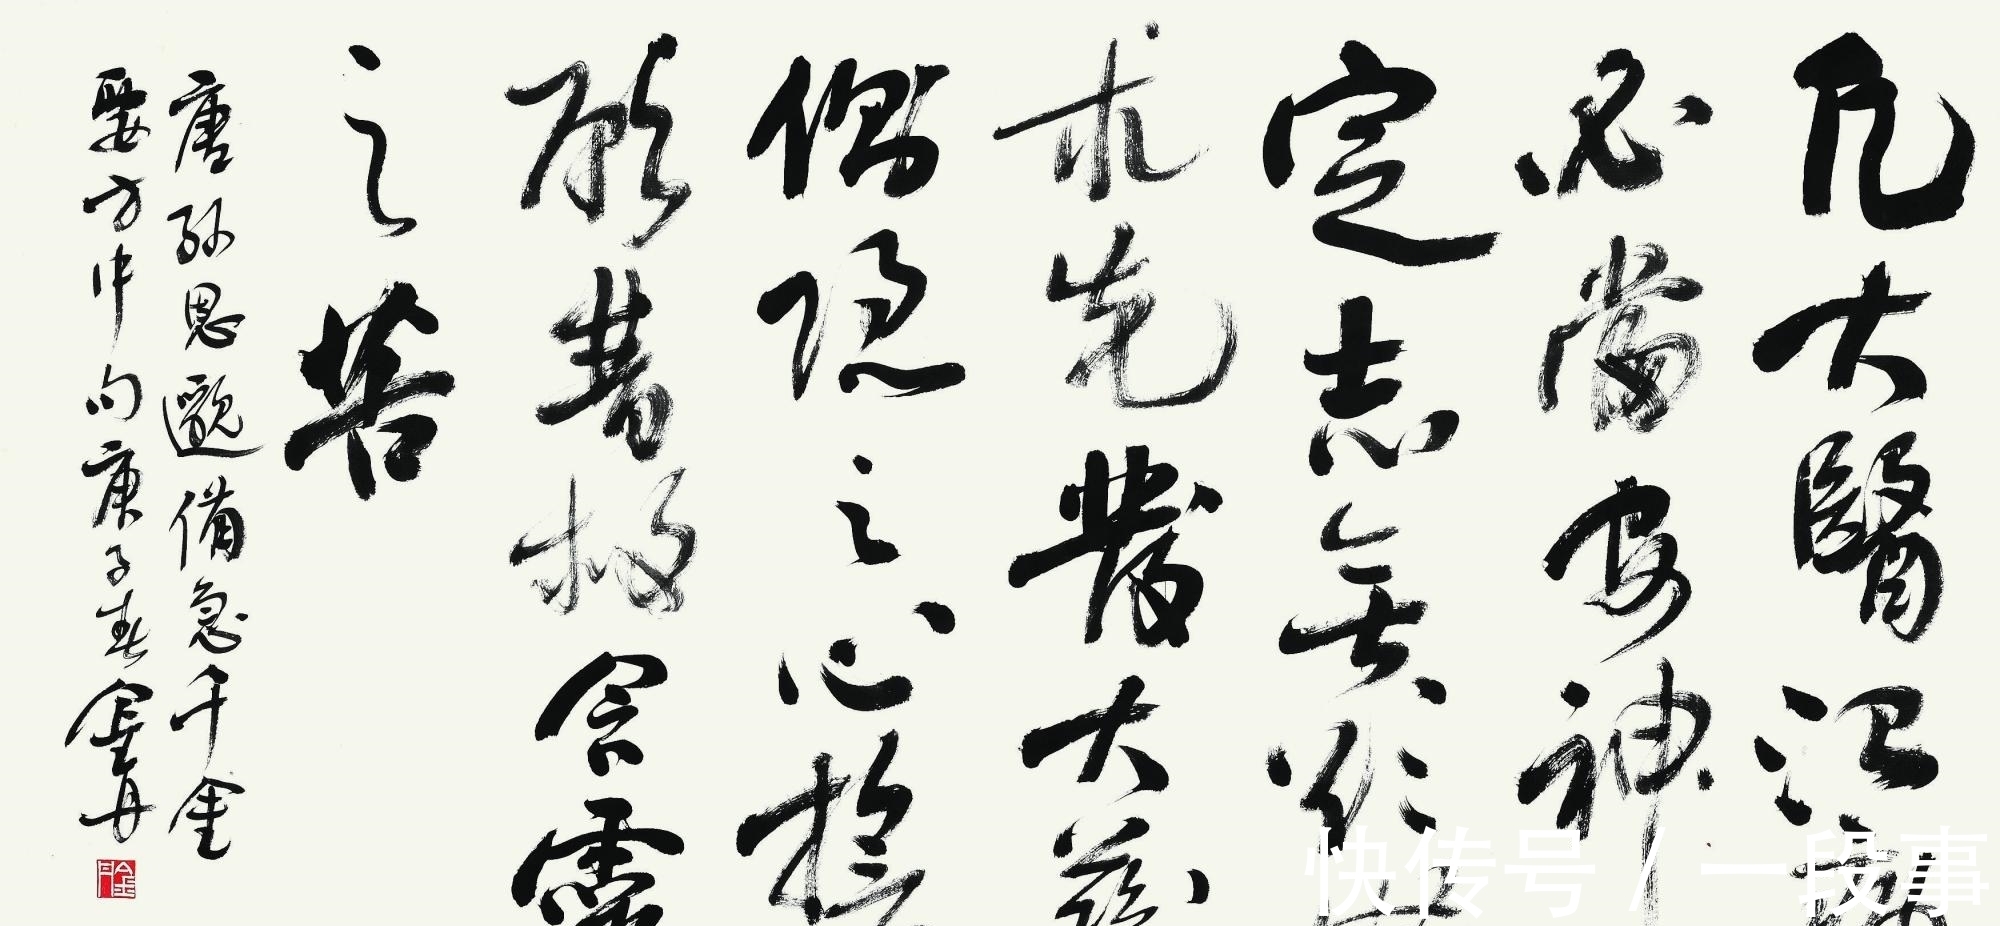 凡大醫治病
必當安神
定志無欲無
求先發大慈
惻隱之心誓
願普救含靈
之苦
唐孫思邈備急千金
要方中句庚子春金丹
快传号 / 一段事